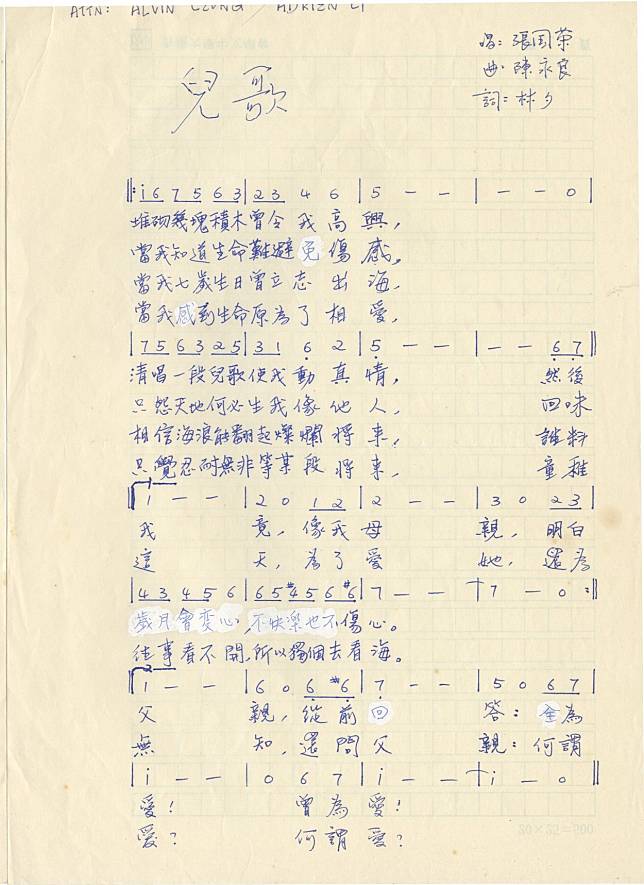 ATTN: ALVIN LEONG / ADRIEN LI
唱: 張国荣
曲: 陳永良
詞: 林夕
兒歌
‖: i 6 7 5 6 3 | 2 3 4 6 | 5 — — | — — 0 |
堆砌幾塊積木曾令我高興,
當我知道生命難避免傷感,
當我七歲生日曾立志出海,
當我感到生命原為了相愛,
| 7 5 6 3 2 5 | 3 1 6 2 | 5 — — | — — 6 7 ‖
清唱一段兒歌使我動真情, 然後
只怨天地何必生我像他人, 回味
相信海浪能翻起燦爛將来, 誰料
只覺忍耐無非等某段將来, 童稚
1
| 1 — — | 2 0 1 2 | 2 — — | 3 0 2 3 |
我竟, 像我母親, 明白
這天, 為了愛她, 還為
| 4 3 4 5 6 | 6 5 #4 5 6 #6 | 7 — — | 7 — 0 :‖
歲月會变心, 不快樂也不傷心。
往事看不開, 所以獨個去看海。
2
| 1 — — | 6 0 6 #6 | 7 — — | 5 0 6 7 |
父親, 從前回答: 全為
無知, 還問父親: 何謂
| i — — | 0 6 7 | i — — | i — 0 ‖
愛! 曾為愛!
愛? 何謂愛?
20×25=500